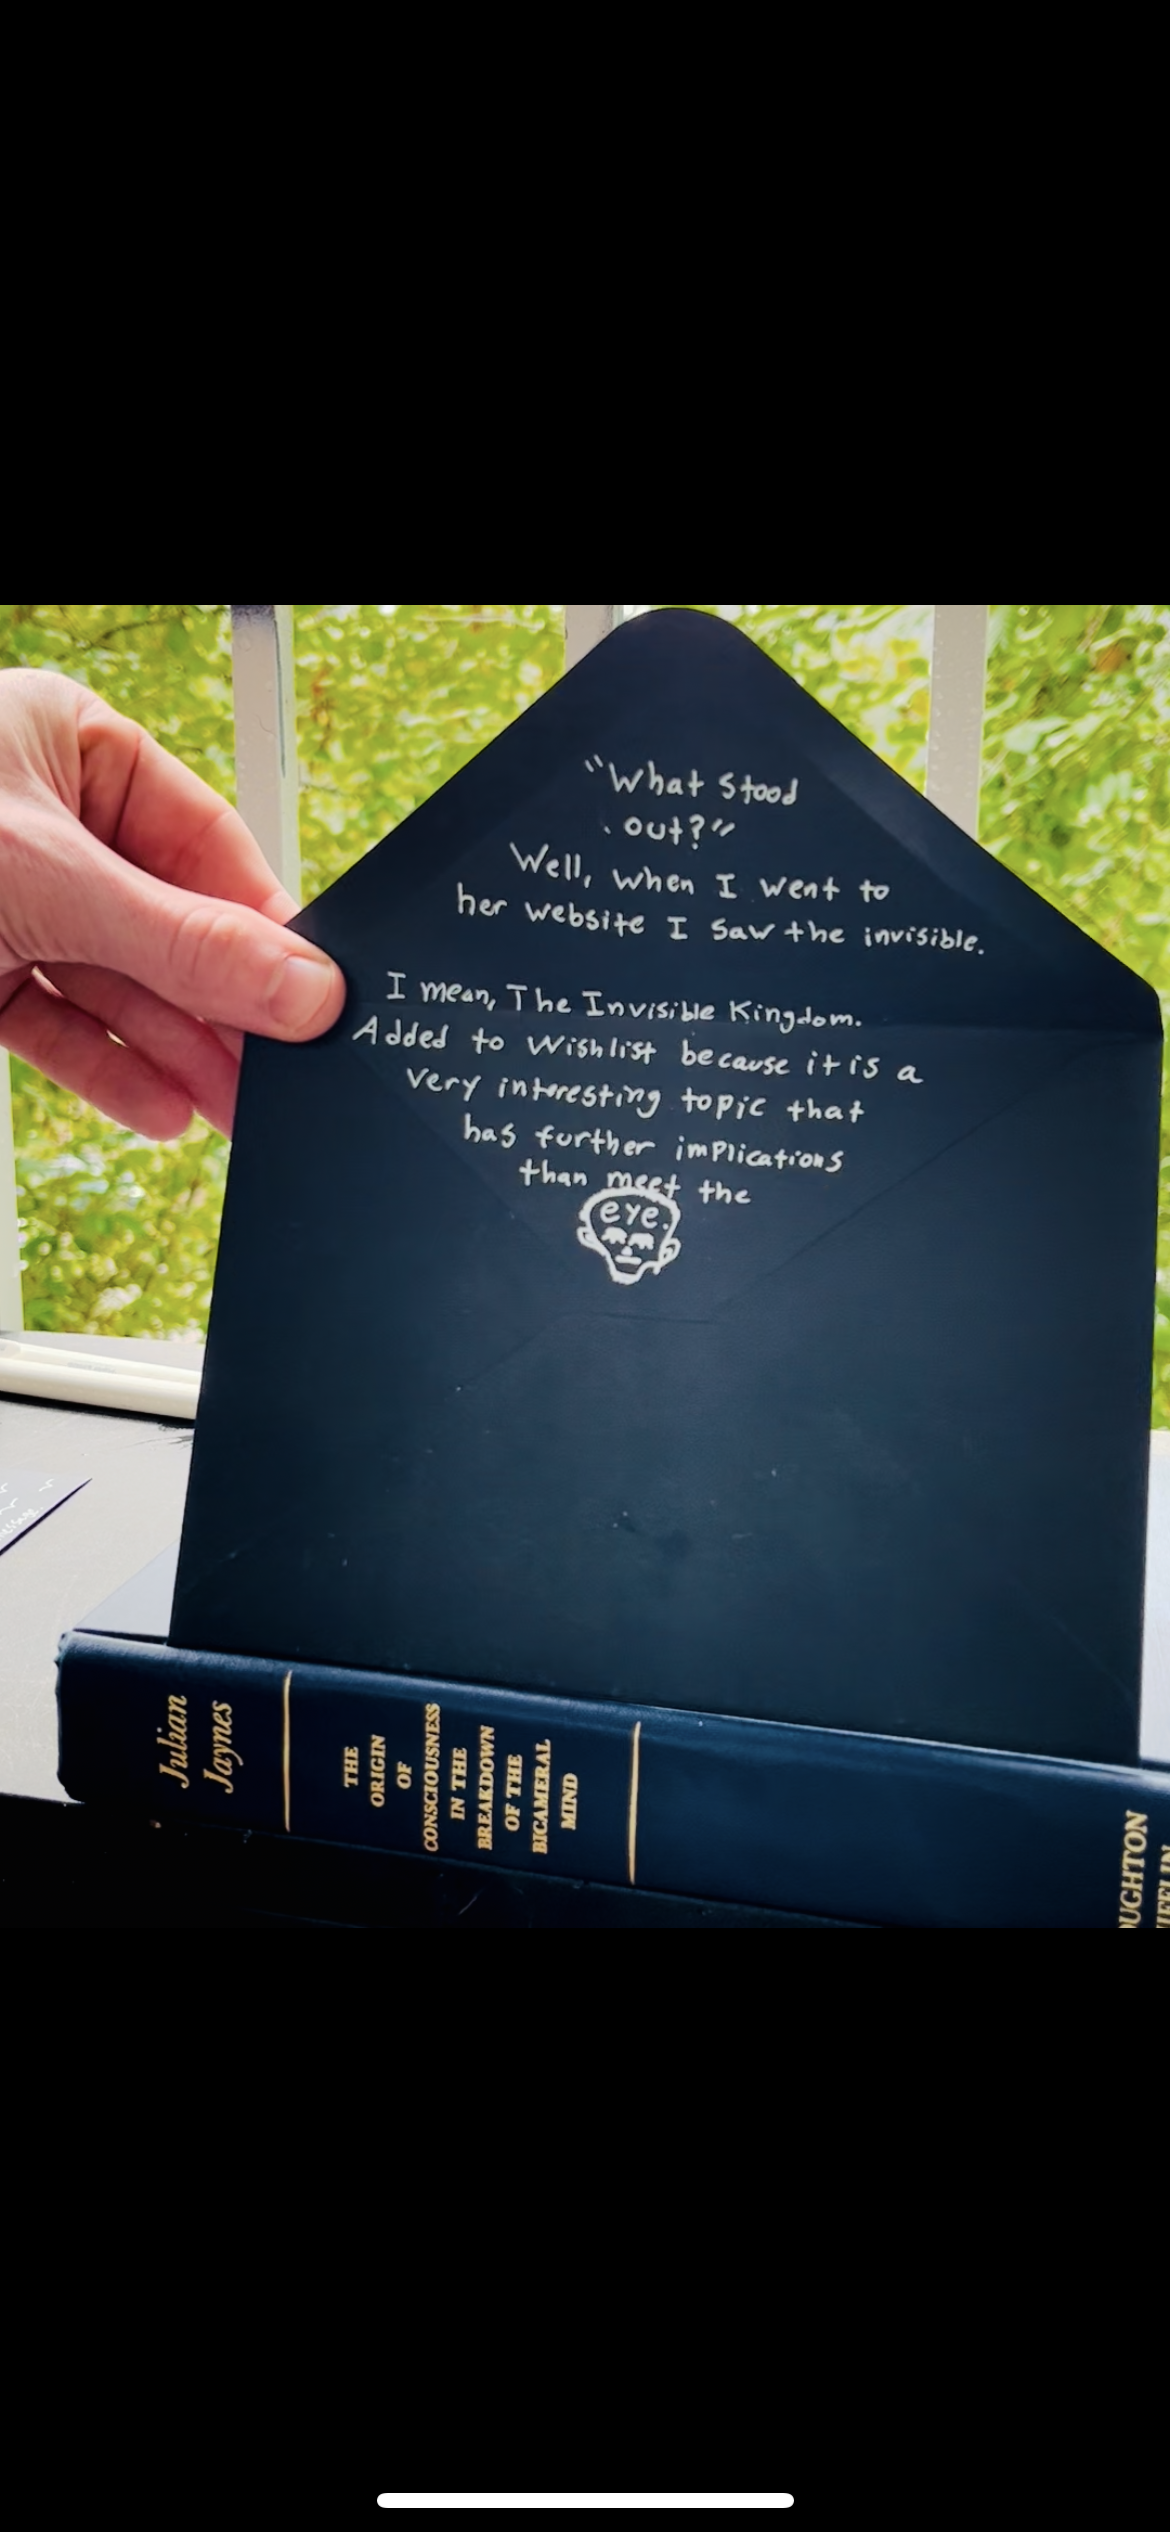 "What stood
out?"
Well, when I went to
her website I saw the invisible.
I mean, The Invisible Kingdom.
Added to wishlist because it is a
very interesting topic that
has further implications
than meet the
eye.
Julian
Jaynes
THE
ORIGIN
OF
CONSCIOUSNESS
IN THE
BREAKDOWN
OF THE
BICAMERAL
MIND
OUGHTON